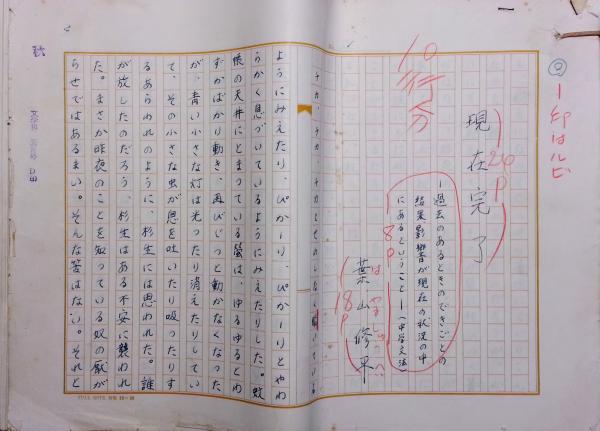 ② ー印はルビ
現在完了
24P
10行分
―過去のあるときのできごとの
結果影響が現在の状況の中
にあるということ―(中学文法)
8P
葉山修平
はやましゅうへい
18P
チカ、チカ、チカとせわしなく瞬いている
ようにみえたり、ぴかーり、ぴかーりとやわ
らかく息づいているようにみえたりした。蚊
帳の天井にとまっている螢は、ゆるゆるとわ
ずかばかり動き、再びじっと動かなくなった
が、青い小さな灯は光ったり消えたりしてい
て、その小さな虫が息を吐いたり吸ったりす
るあらわれのように、杉生には思われた。誰
が放したのだろう、杉生はある不安に襲われ
た。まさか昨夜のことを知っている奴の厭が
らせではあるまい。そんな筈はない。それと
FULL NOTE